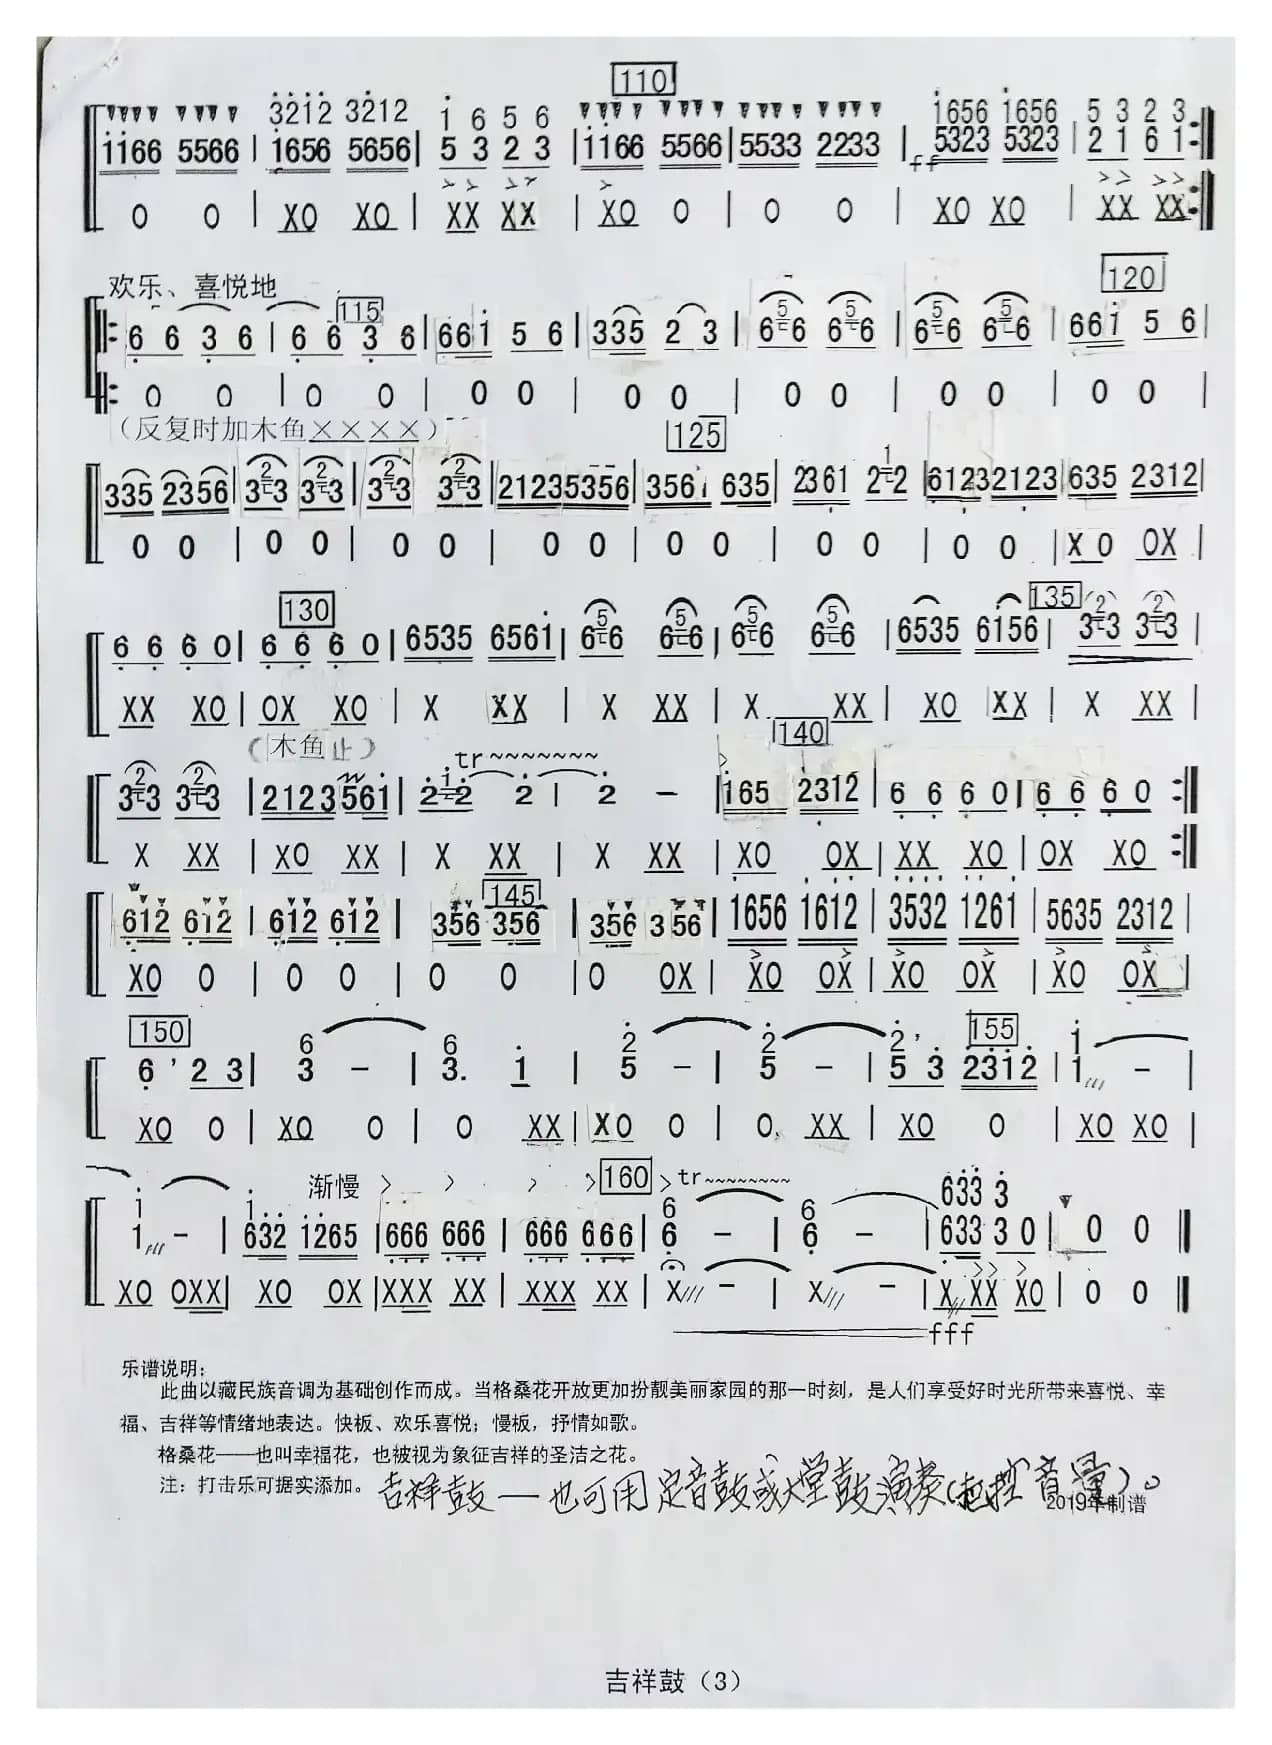 110
3212 3212 1 6 5 6 1656 1656 5 3 2 3
1166 5566 | 1656 5656 | 5 3 2 3 | 1166 5566 | 5533 2233 | ff 5323 5323 | 2 1 6 1
0 0 | X0 X0 | XX XX | X0 0 | 0 0 | X0 X0 | XX XX
欢乐、喜悦地
115 120
6 6 3 6 | 6 6 3 6 | 661 5 6 | 335 2 3 | 6 6 6 6 | 6 6 6 6 | 661 5 6 |
0 0 | 0 0 | 0 0 | 0 0 | 0 0 | 0 0 | 0 0 |
(反复时加木鱼XXXX)
125
335 2356 | 3 3 3 3 | 3 3 3 3 | 21235356 | 3561 635 | 2361 2 2 | 61232123 | 635 2312 |
0 0 | 0 0 | 0 0 | 0 0 | 0 0 | 0 0 | 0 0 | X 0 0X |
130 135
6 6 6 0 | 6 6 6 0 | 6535 6561 | 6 6 6 6 | 6 6 6 6 | 6535 6156 | 3 3 3 3 |
XX X0 | 0X X0 | X XX | X XX | X XX | X0 XX | X XX |
(木鱼止)
tr 140
3 3 3 3 | 2123 561 | 2 2 2 | 2 - | 165 2312 | 6 6 6 0 | 6 6 6 0
X XX | X0 XX | X XX | X XX | X0 0X | XX X0 | 0X X0
145
612 612 | 612 612 | 356 356 | 356 356 | 1656 1612 | 3532 1261 | 5635 2312 |
X0 0 | 0 0 | 0 0 | 0 0X | X0 0X | X0 0X | X0 0X |
150 155
6 6 2 2 2 1
6 ' 2 3 | 3 - | 3. 1 | 5 - | 5 - | 5 3 2312 | 1 - |
X0 0 | X0 0 | 0 XX | X0 0 | 0 XX | X0 0 | X0 X0 |
渐慢 160 tr
1 1 6 6 633 3
1 - | 632 1265 | 666 666 | 666 666 | 6 - | 6 - | 633 3 0 | 0 0
X0 0XX | X0 0X | XXX XX | XXX XX | X - | X - | X XX X0 | 0 0
fff
乐谱说明:
此曲以藏民族音调为基础创作而成。当格桑花开放更加扮靓美丽家园的那一时刻，是人们享受好时光所带来喜悦、幸
福、吉祥等情绪地表达。快板、欢乐喜悦；慢板，抒情如歌。
格桑花——也叫幸福花，也被视为象征吉祥的圣洁之花。
注: 打击乐可据实添加。吉祥鼓—也可用定音鼓或大堂鼓演奏(把控音量)。
2019年制谱
吉祥鼓（3）